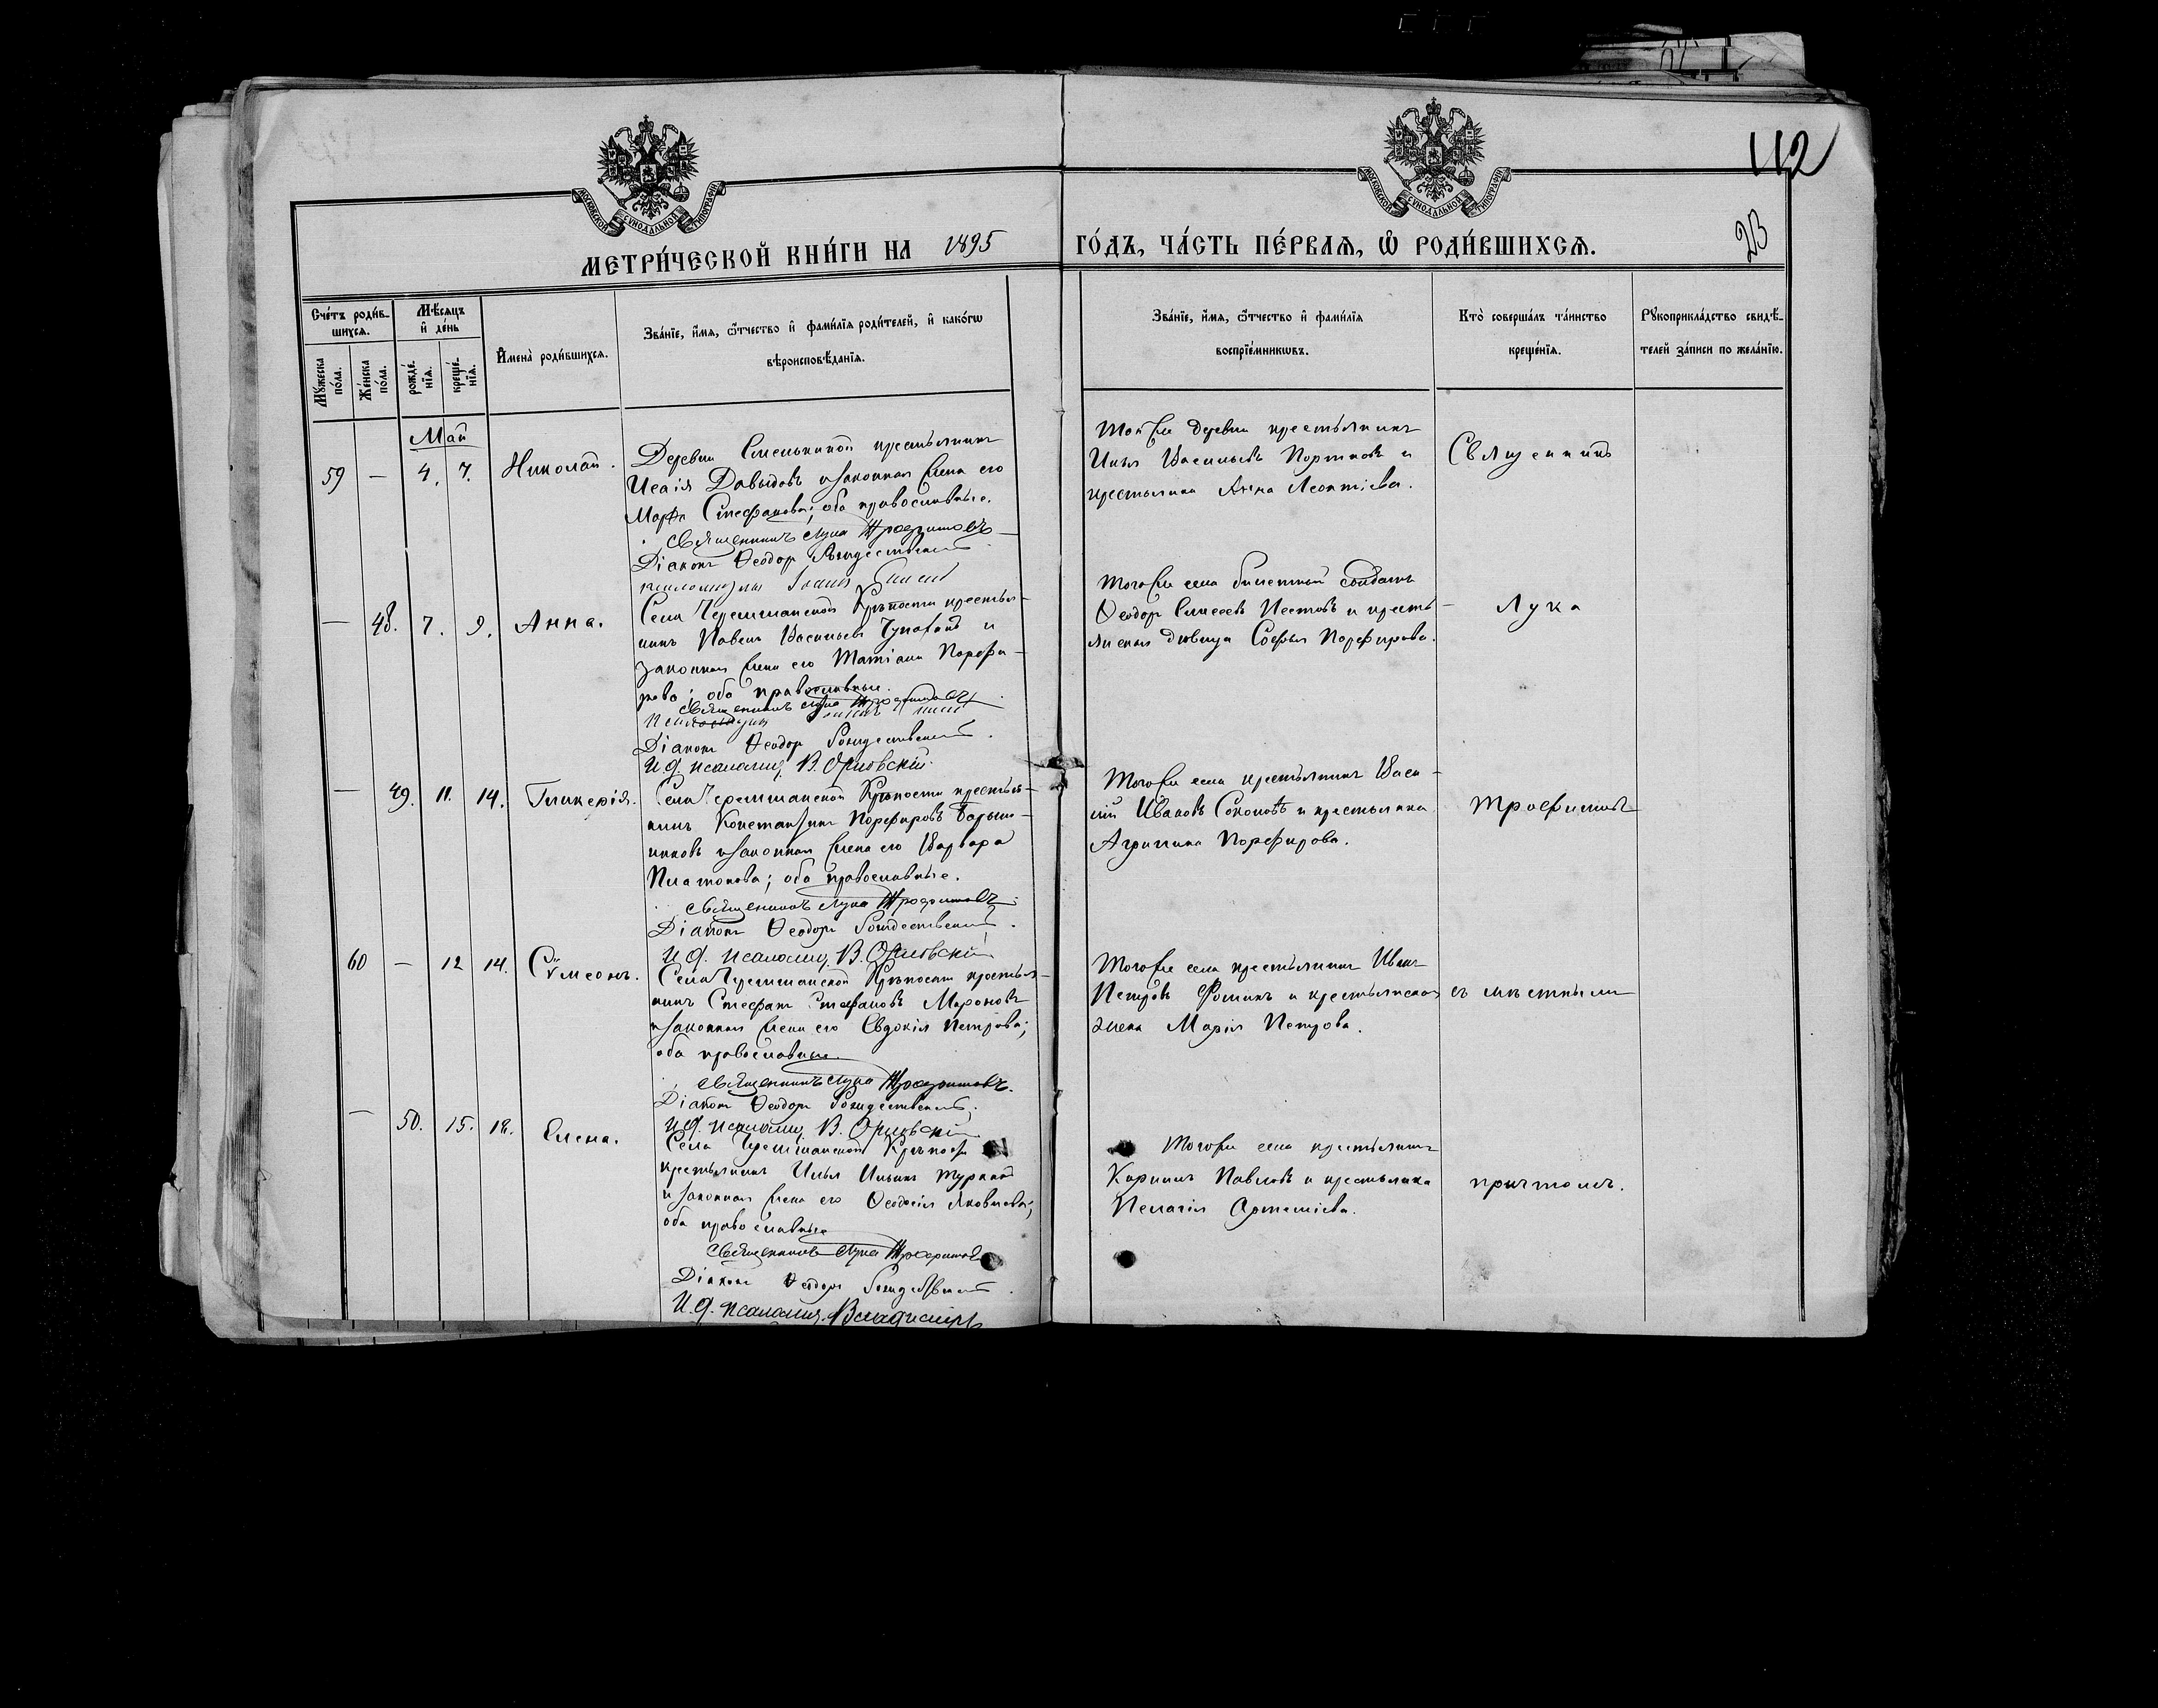 112
213
МОСКОВСКОЙ СУНОДАЛЬНОЙ ТИПОГРАФІИ
МОСКОВСКОЙ СУНОДАЛЬНОЙ ТИПОГРАФІИ
МЕТРИ́ЧЕСКОЙ КНИ́ГИ НА 1895 ГО́ДЪ, ЧА́СТЬ ПЕ́РВАѦ, Ѡ РОДИ́ВШИХСѦ.
Сче́тъ роди́в-
шихсѧ.
Мꙋ́жеска по́ла.
Же́нска по́ла.
Мѣ́сѧцъ и де́нь
рожде́-нїѧ.
креще́-нїѧ.
Имена̀ роди́вшихсѧ.
Зва́нїе, и́мѧ, ѻ́тчество и фами́лїѧ роди́телей, и како́гѡ
вѣроисповѣ́данїѧ.
Зва́нїе, и́мѧ, ѻ́тчество и фами́лїѧ
воспрїе́мникѡвъ.
Кто̀ соверша́лъ та́инство
креще́нїѧ.
Рꙋкоприкла́дство свидѣ́-
телей за́писи по жела́нїю.
Май
59 — 4. 7. Николай.
Деревни крестьянинъ
Исаія Давыдовъ и законная жена его
Марѳа Стефанова; оба православные.
Священникъ Лука Трофимовъ
Діаконъ Ѳеодоръ Рождественскій
Той же деревни крестьянинъ
Васильевъ и
крестьянка Анна Леонтіева.
Священникъ
— 48. 7. 9. Анна.
Села Черемшанской Крѣпости крестья-
нинъ Павелъ Васильевъ и
законная жена его Татіана Порфи-
рова; оба православные.
Священникъ Лука Трофимовъ
Діаконъ Ѳеодоръ Рождественскій.
И. д. псаломщ. В. Орловскій
Того же села билетный солдатъ
Ѳеодоръ и кресть-
янская дѣвица Софья Порфирова.
Лука
— 49. 11. 14. Гликерія.
Села Черемшанской Крѣпости крестья-
нинъ Константинъ Порфировъ Барыш-
никовъ и законная жена его Варвара
Платонова; оба православные.
Священникъ Лука Трофимовъ
Діаконъ Ѳеодоръ Рождественскій.
И. д. псаломщ. В. Орловскій
Того же села крестьянинъ Васи-
лій Ивановъ Соколовъ и крестьянка
Агрипина Порфирова.
Трофимовъ
60 — 12 14. Сѵмеонъ.
Села Черемшанской Крѣпости крестья-
нинъ Стефанъ Стефановъ Мироновъ
и законная жена его Евдокія Петрова;
оба православные.
Священникъ Лука Трофимовъ.
Діаконъ Ѳеодоръ Рождественскій.
И. д. псаломщ. В. Орловскій
Того же села крестьянинъ Иванъ
Петровъ Фоминъ и крестьянская
жена Марія Петрова.
съ мѣстнымъ
— 50. 15. 18. Елена.
Села Черемшанской Крѣпости
крестьянинъ Илья Ильинъ
и законная жена его Ѳеодосія Яковлева;
оба православные
Священникъ Лука Трофимовъ
Діаконъ Ѳеодоръ Рождественскій.
И. д. псаломщ. Владиміръ
Того же села крестьянинъ
Павловъ и крестьянка
Пелагія Артемьева.
причтомъ.